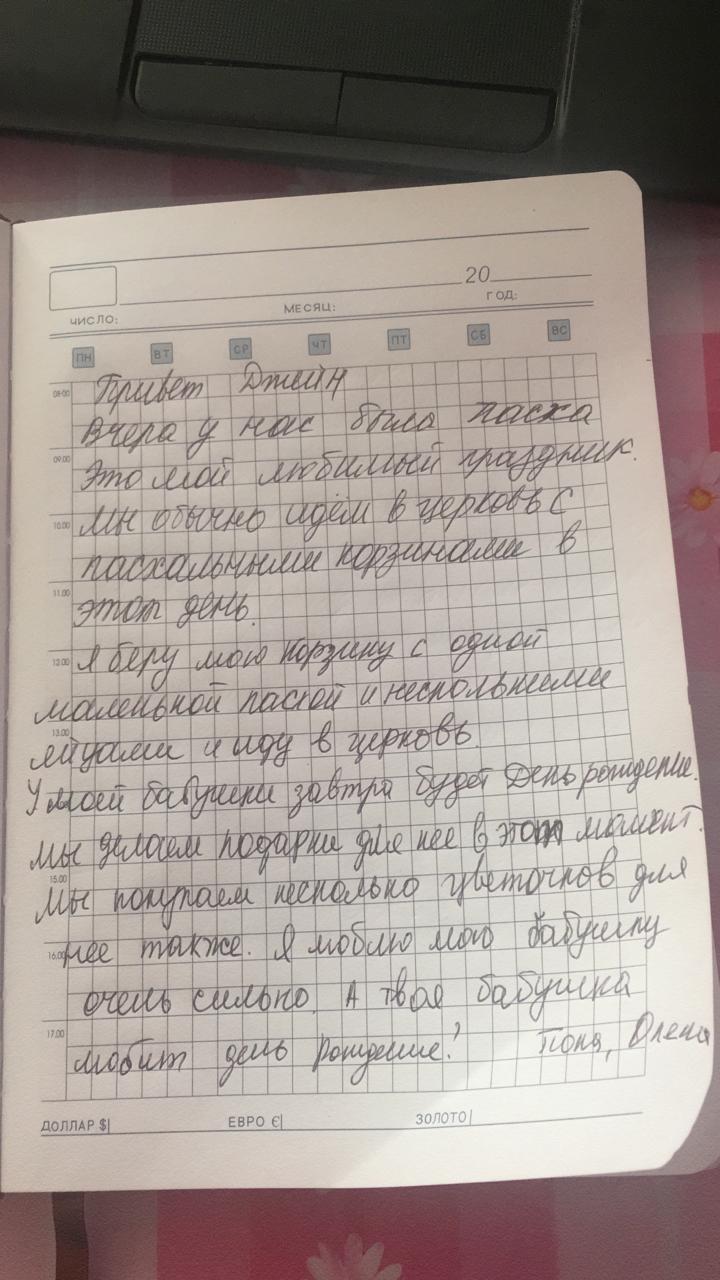 20
ЧИСЛО: МЕСЯЦ: ГОД:
ПН ВТ СР ЧТ ПТ СБ ВС
08:00 Привет Джейн
Вчера у нас была пасха
09.00 Это мой любимый праздник.
10.00 Мы обычно идём в церковь с
пасхальными корзинами в
11.00 этот день.
12.00 Я беру мою корзину с одной
маленькой паской и несколькими
13.00 яйцами и иду в церковь.
У моей бабушки завтра будет День рождение.
Мы делаем подарки для нее в этот момент.
15.00 Мы покупаем несколько цветочков для
16.00 нее также. Я люблю мою бабушку
очень сильно. А твоя бабушка
17.00 любит день рождение? Пока, Олена
ДОЛЛАР $ ЕВРО € ЗОЛОТО